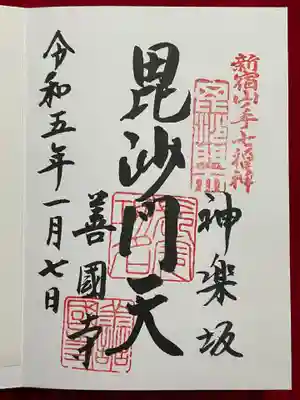 新宿山ノ手七福神
神楽坂
毘沙門天
善國寺
令和五年一月七日